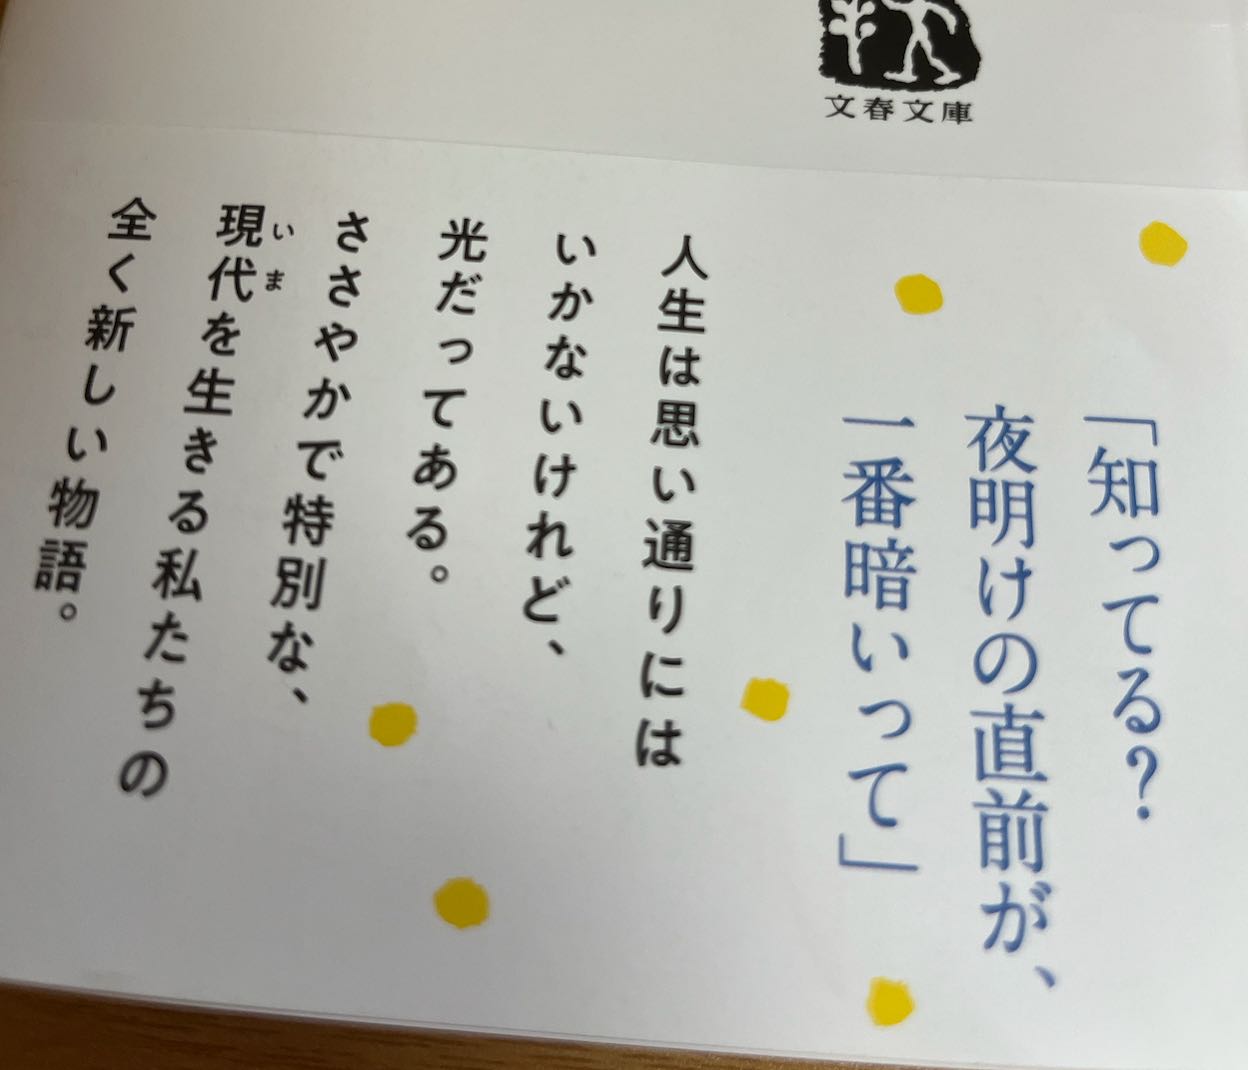 文春文庫
「知ってる？
夜明けの直前が、
一番暗いって」
人生は思い通りには
いかないけれど、
光だってある。
ささやかで特別な、
現代を生きる私たちの
いま
全く新しい物語。